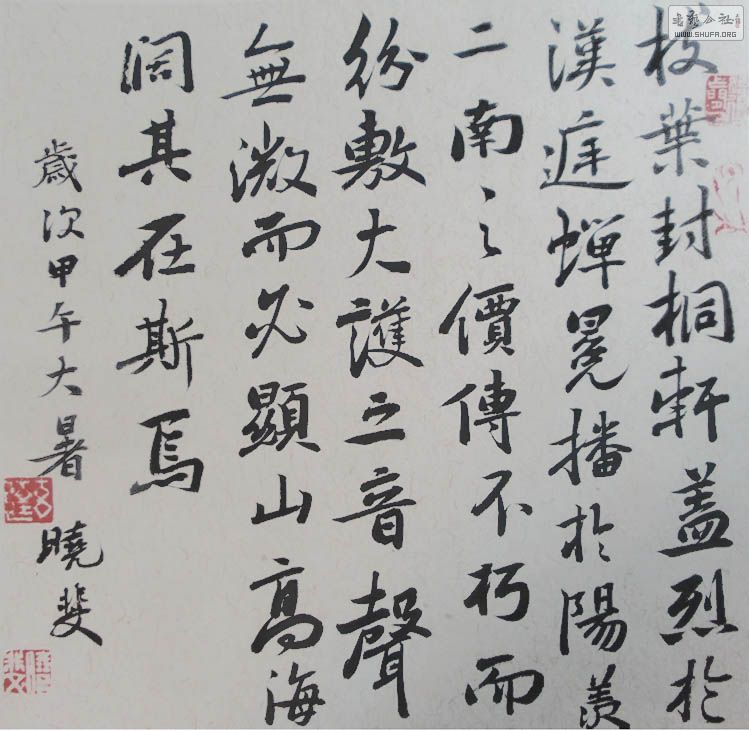 枝葉封桐軒盖烈於
漢庭蟬冕播於陽羨
二南之價傳不朽而
紛敷大護之音聲
無微而必顯山高海
闊其在斯焉
歲次甲午大暑 曉斐
WWW.SHUFA.ORG